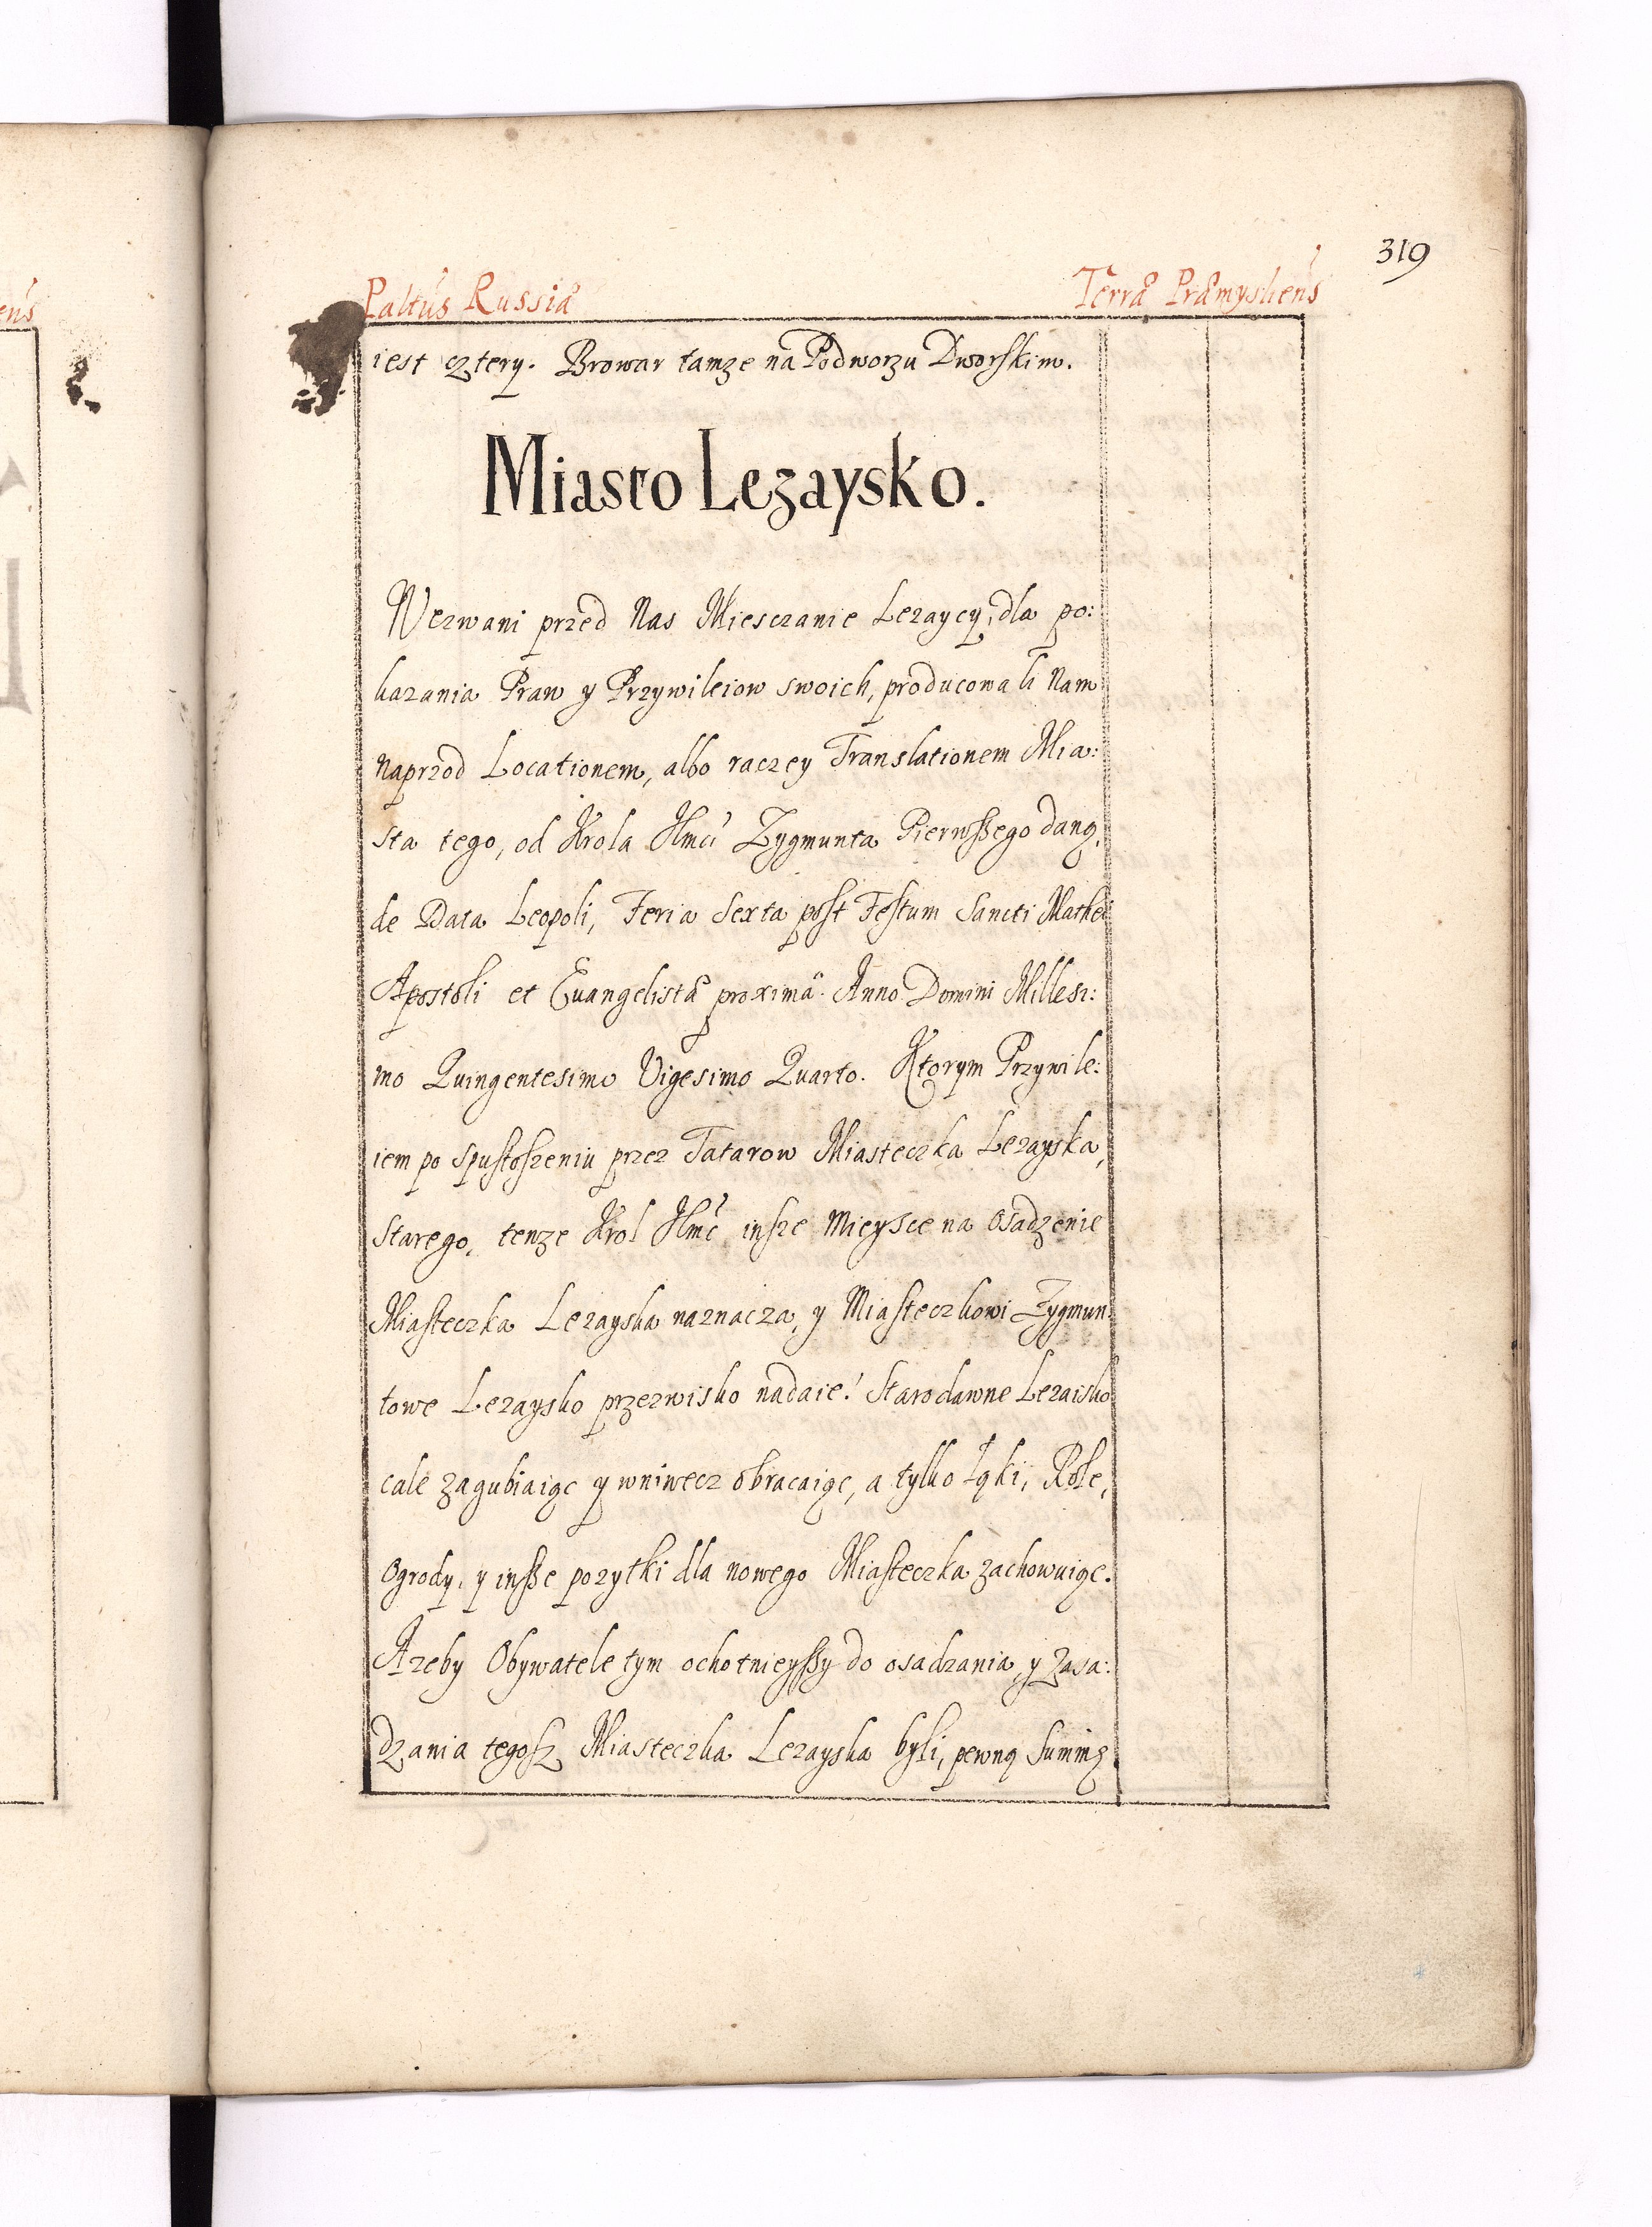 319
Paltus Russiæ Terræ Præmysliens
iest cztery. Browar tamze na Podworzu Dworskim.
Miasto Lezaysko.
Wezwani przed Nas Miesczanie Lezaycy, dla po:
kazania Praw y Przywileiow swoich, producowali Nam
naprzod Locationem, albo raczey Translationem Mia:
sta tego, od Krola Jmci Zygmunta Pierwszego daną,
de Data Leopoli, Feria Sexta post Festum Sancti Mathei
Apostoli et Evangelistæ proximâ. Anno Domini Millesi:
mo Quingentesimo Vigesimo Quarto. Ktorym Przywile:
iem po spustoszeniu przez Tatarow Miasteczka Lezayska,
Starego, tenze Krol Jmc insze Mieysce na osadzenie
Miasteczka Lezayska naznacza, y Miasteczkowi Zygmun:
towe Lezaysko przezwisko nadaie! Starodawne Lezaisko
cale zagubiaiąc y wniwecz obracaiąc, a tylko łąki, Role,
Ogrody, y insze pozytki dla nowego Miasteczka zachowuiąc.
Azeby Obywatele tym ochotnieyszy do osadzania, y zasa:
dzania tegosz Miasteczka Lezayska byli, pewną Summę